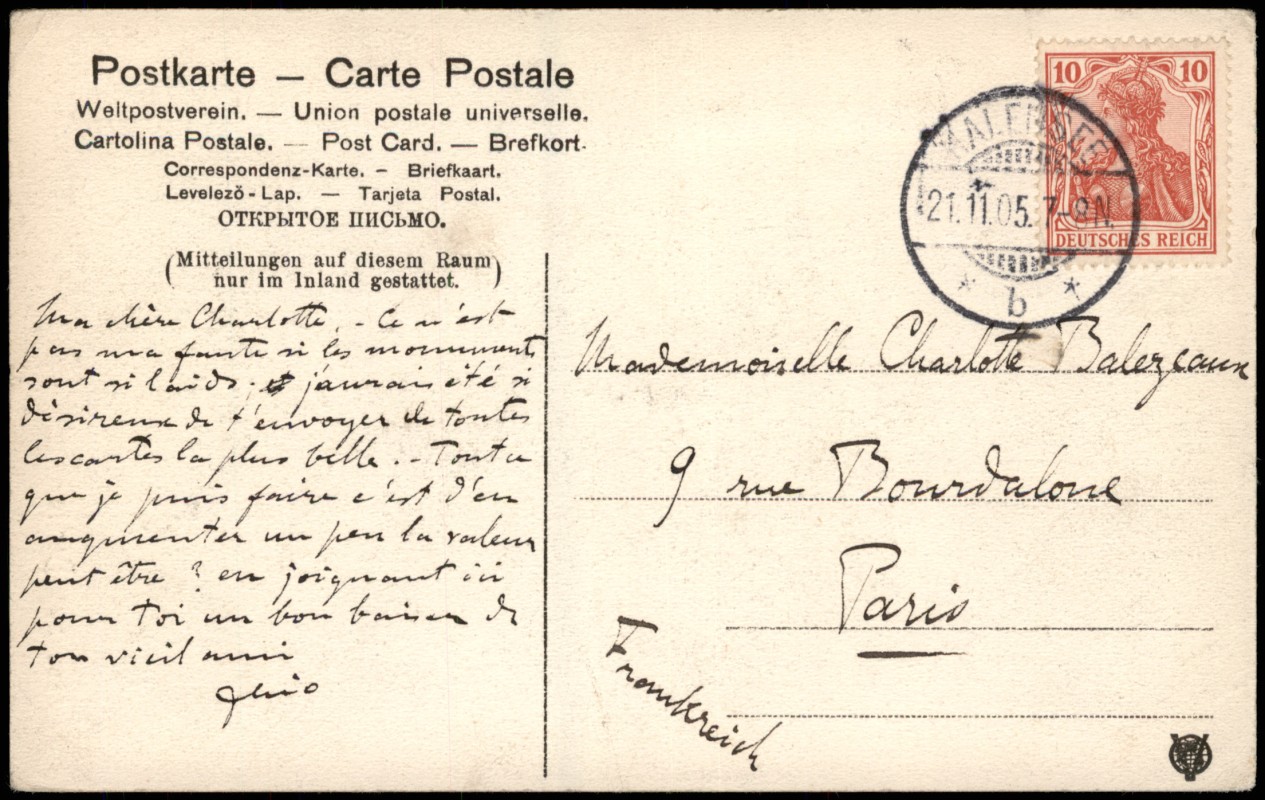 Postkarte — Carte Postale
Weltpostverein. — Union postale universelle.
Cartolina Postale. — Post Card. — Brefkort.
Correspondenz-Karte. – Briefkaart.
Levelező-Lap. — Tarjeta Postal.
ОТКРЫТОЕ ПИСЬМО.
(Mitteilungen auf diesem Raum
nur im Inland gestattet.)
Ma chère Charlotte, - Ce n'est
pas ma faute si les monuments
sont si laids; j'aurais été si
désireux de t'envoyer de toutes
les cartes la plus belle. - Tout ce
que je puis faire c'est d'en
augmenter un peu la valeur
peut être ? en joignant ici
pour toi un bon baiser de
ton vieil ami
10 10
DEUTSCHES REICH
HALENSEE
21.11.05. 7-8N.
* b *
Mademoiselle Charlotte Balezeaux
9 rue Bourdaloue
Paris
Frankreich